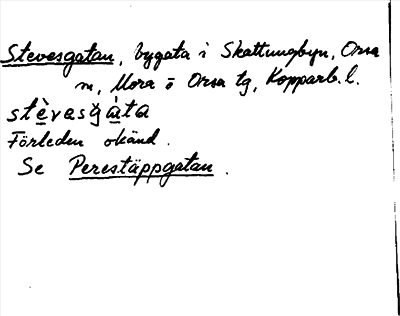 Stevesgatan, bygata i Skattungbyn, Orsa
sn, Mora o Orsa tg, Kopparb. l.
stè̱vasg̀à̱ta
Förleden okänd.
Se Perestäppgatan.